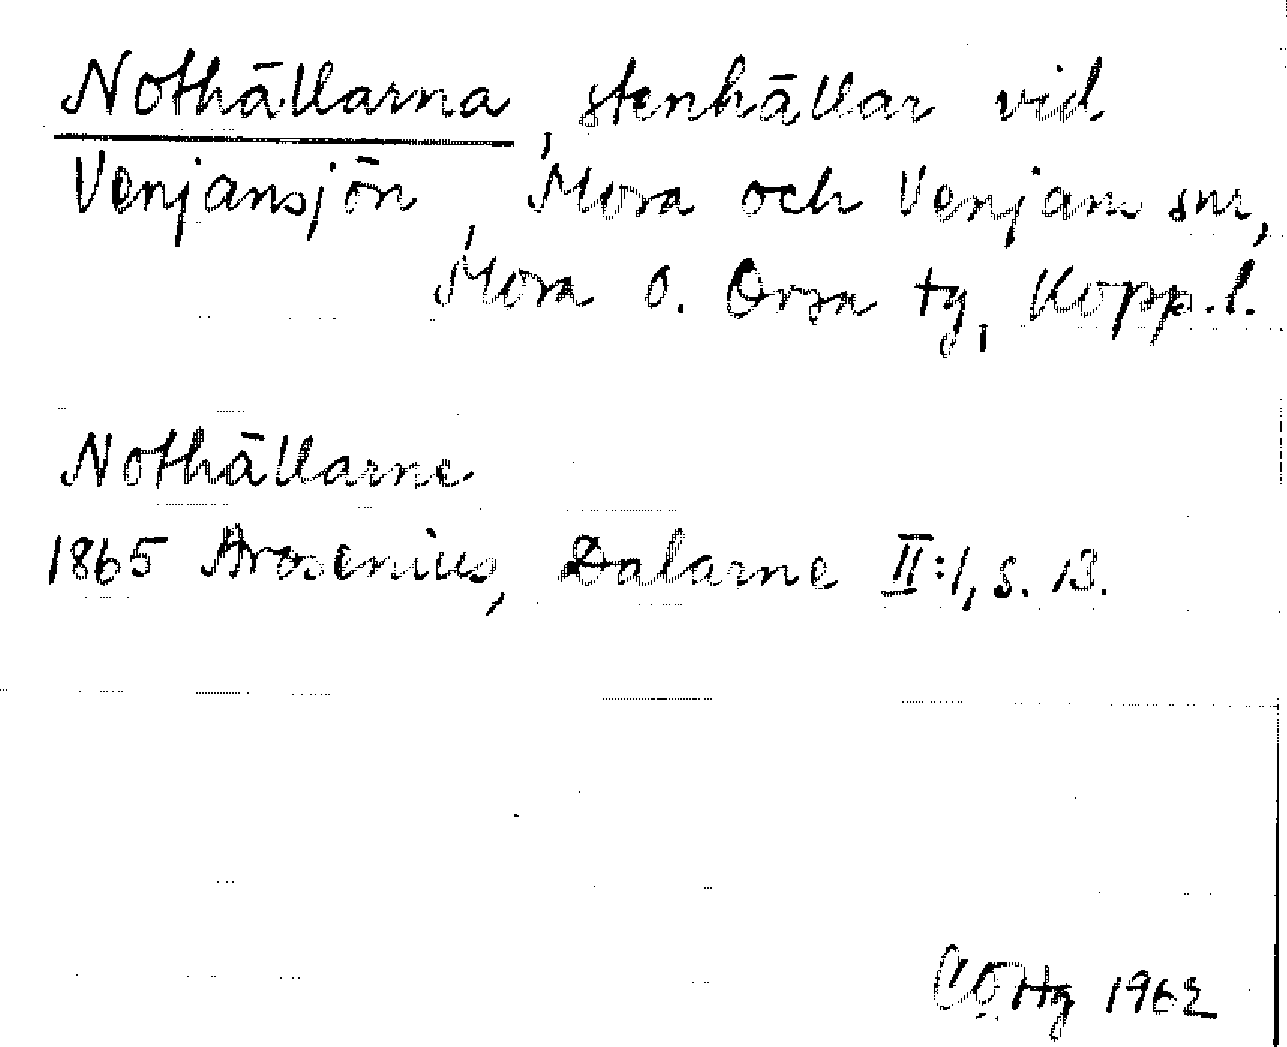 Nothällarna, stenhällar vid
Venjansjön, Mora och Venjans snr,
Mora o. Orsa tg, Kopp.l.
Nothällarne
1865 Arosenius, Dalarne II:1, s. 13.
1962